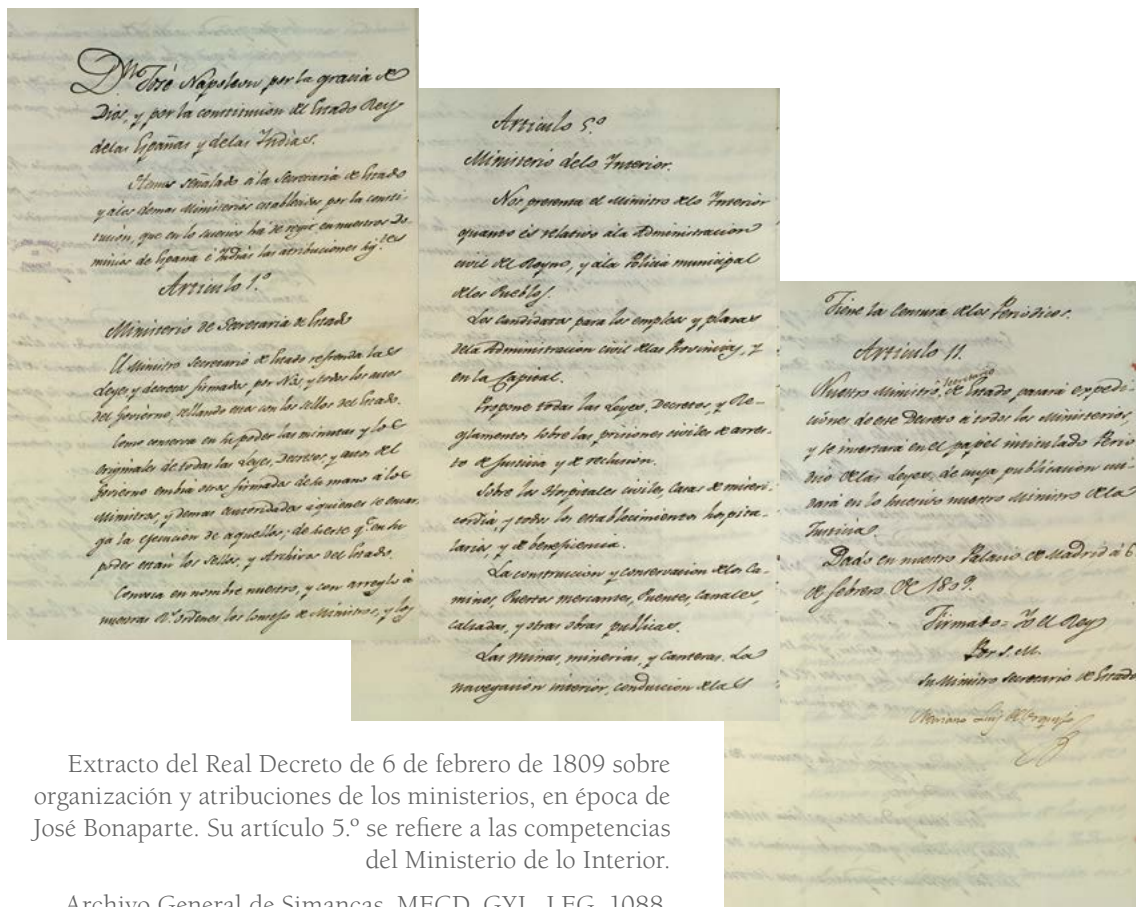 Dn. José Napoleon por la gracia de
Dios, y por la constitucion del Estado Rey
delas Españas y delas Indias.
Hemos señalado ala Secretaria de Estado
y alos demas Ministerios establecidos por la consti-
tucion, que en lo sucesivo há de regir en nuestros Do-
minios de España é Indias las atribuciones sig.tes
Articulo 1.º
Ministerio de Secretaria de Estado
El Ministro Secretario de Estado refrenda las
Leyes y decretos firmados por Nos y todos los actos
del Gobierno, sellando estos con los sellos del Estado.
Como conserva en su poder las minutas y los
originales de todas las Leyes, Decretos, y actos del
Gobierno embia otras firmadas de su mano à los
Ministros, y demas autoridades aquienes se encar-
ga la ejecucion de aquellos; de suerte q.e en su
poder están los sellos, y Archivos del Estado.
Convoca en nombre nuestro, y con arreglo à
nuestras R.s ordenes los Consejos de Ministros, y los
Articulo 5.º
Ministerio delo Interior.
Nos presenta el Ministro delo Interior
quanto és relativo ala Administracion
civil del Reyno, y ala Policia municipal
delos Pueblos.
Los candidatos para los empleos y plazas
dela Administracion civil delas Provincias, y
en la Capital.
Propone todas las Leyes, Decretos, y Re-
glamentos sobre las prisiones civiles de arres-
to de Justicia y de reclusion.
Sobre los Hospitales civiles, Casas de miseri-
cordia, y todos los establecimientos hospita-
larios, y de beneficencia.
La construccion y conservacion delos Ca-
minos, Puertos mercantes, Puentes, Canales,
calzadas, y otras obras publicas.
Las minas, minerias, y Canteras. La
navegacion interior, conduccion delas
Tiene la Censura delos Periodicos.
Articulo 11.
Nuestro Ministro Secretario de Estado pasará expedi-
ciones de este Decreto á todos los Ministerios,
y se insertará en el papel intitulado Perio-
dico delas Leyes, de cuya publicacion cui-
dará en lo sucesivo nuestro Ministro dela
Justicia.
Dado en nuestro Palacio de Madrid á 6
de febrero de 1809.
Firmado = Yo el Rey
Por S. M.
Su Ministro Secretario de Estado
Mariano Luis de Urquijo
Extracto del Real Decreto de 6 de febrero de 1809 sobre
organización y atribuciones de los ministerios, en época de
José Bonaparte. Su artículo 5.º se refiere a las competencias
del Ministerio de lo Interior.
Archivo General de Simancas. MECD. GYJ., LEG, 1088.